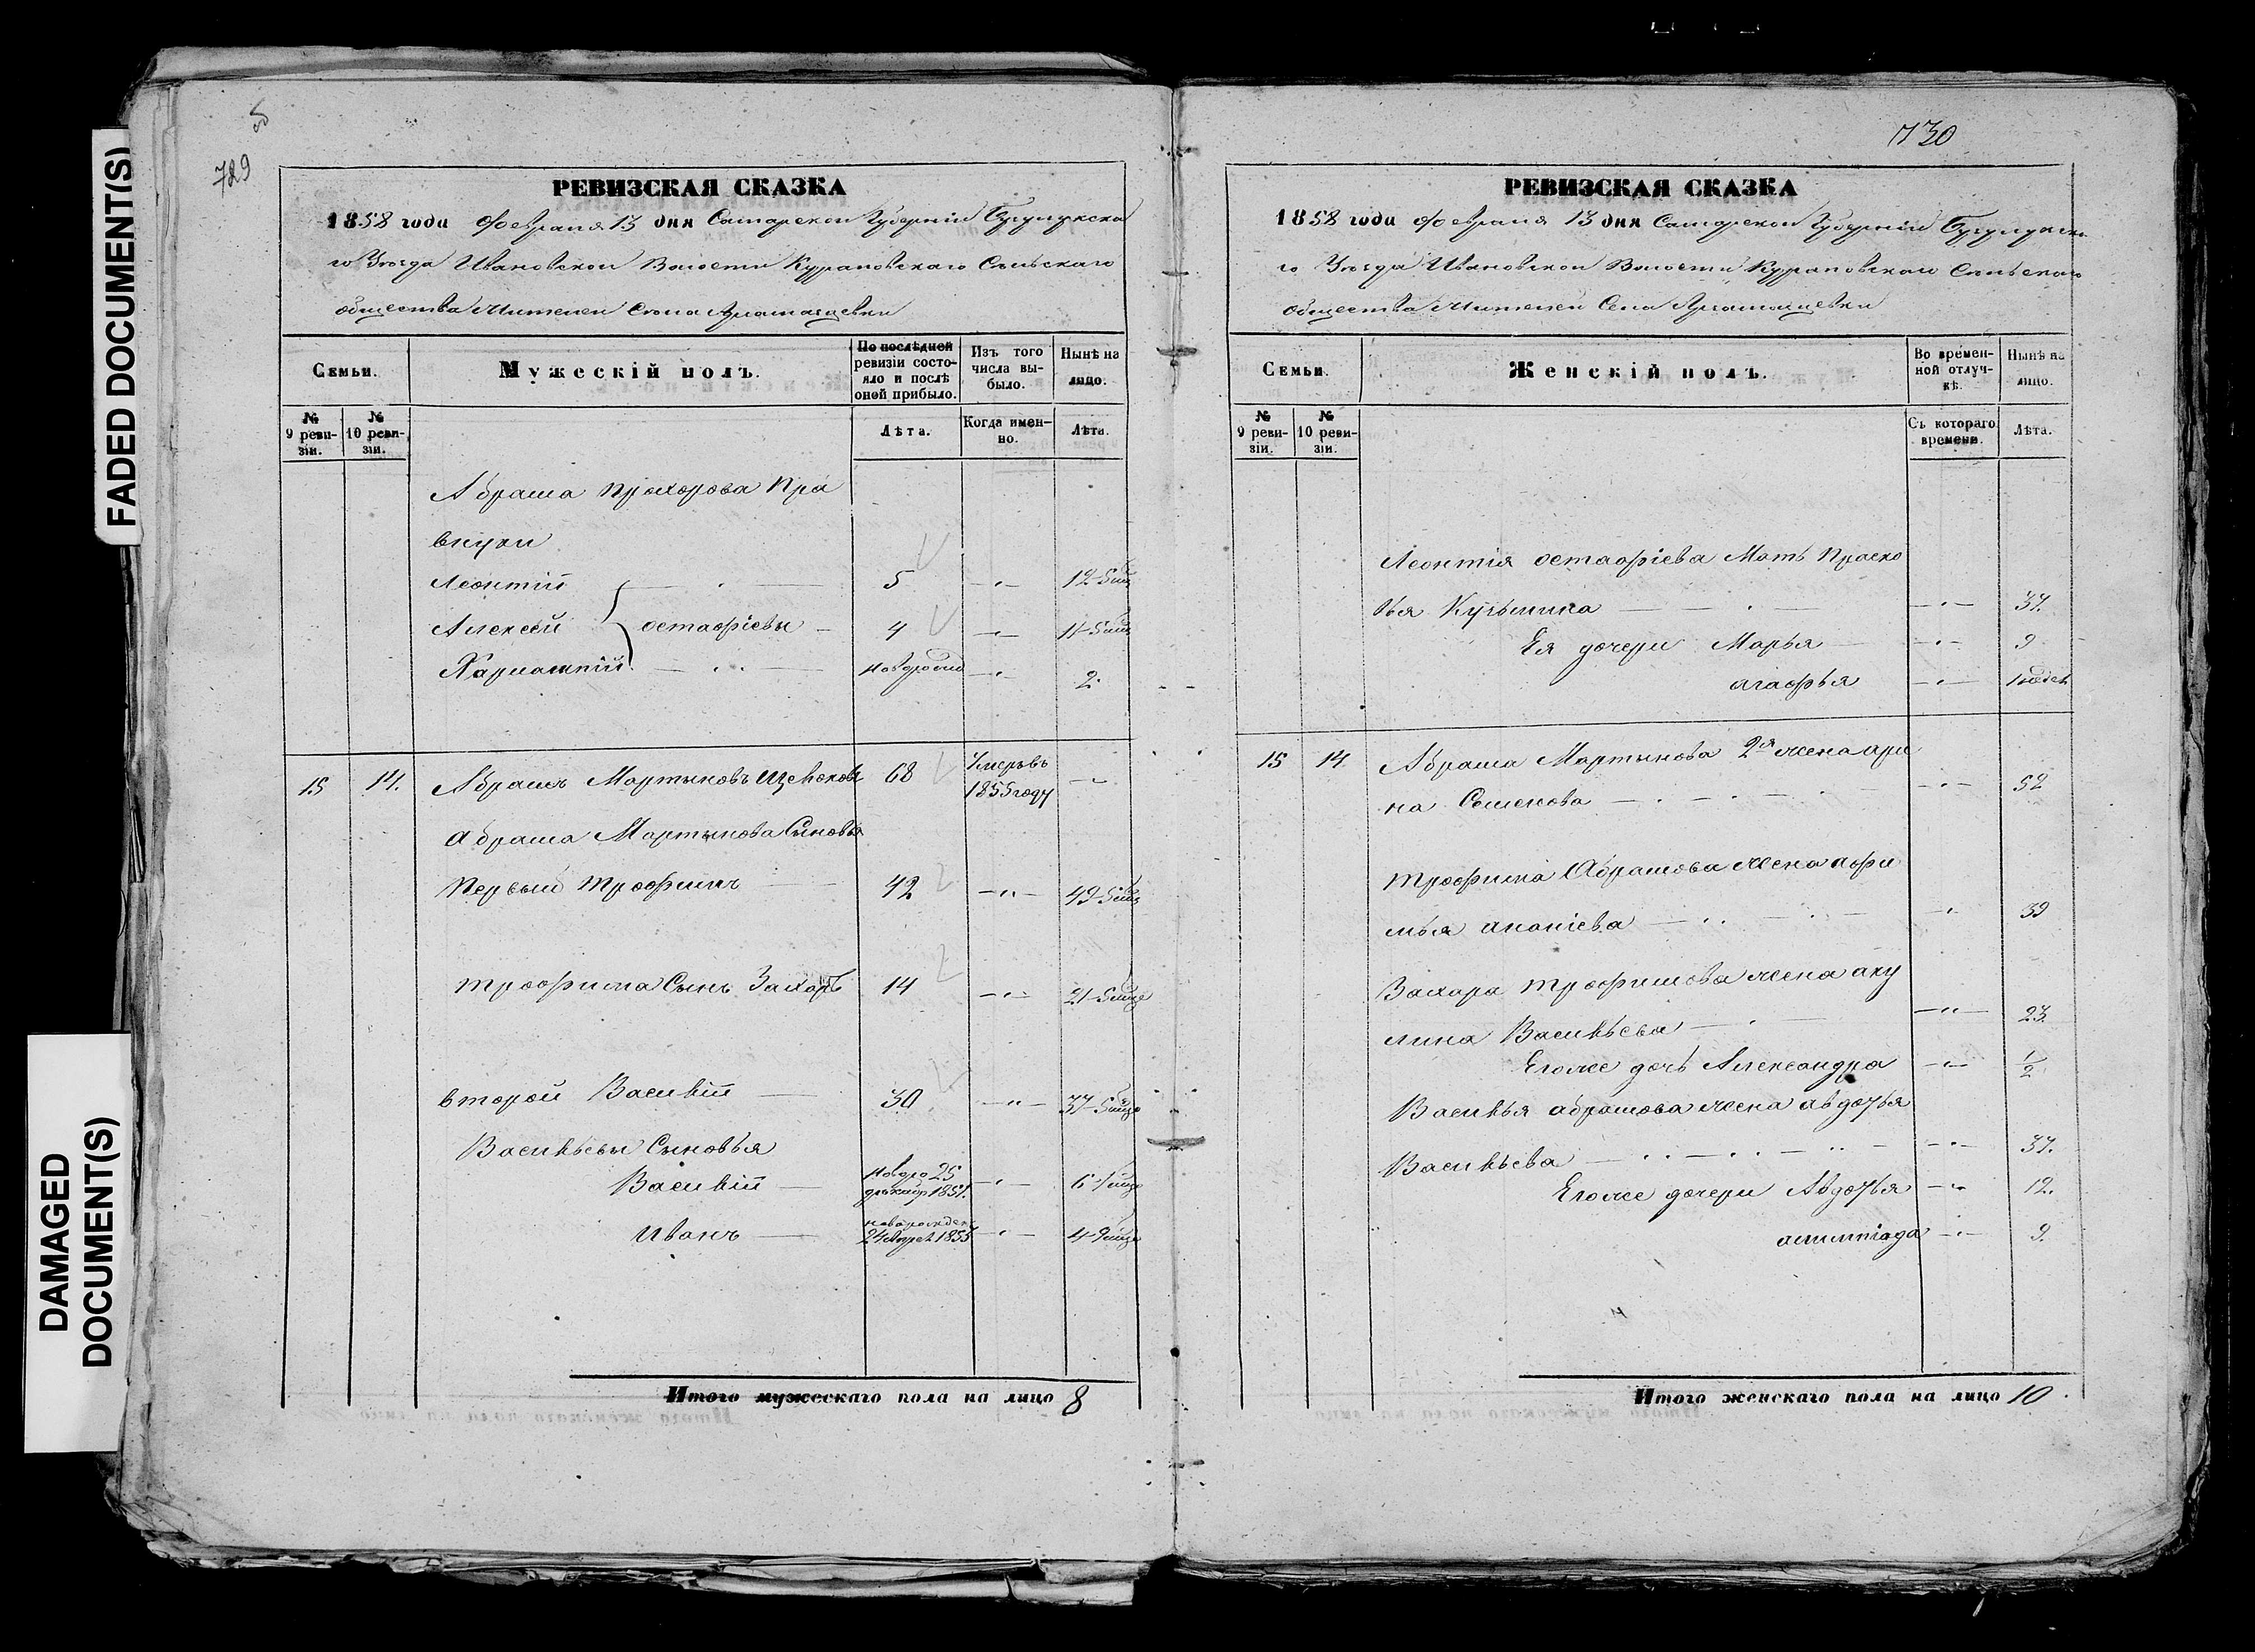 FADED DOCUMENT(S)
DAMAGED
DOCUMENT(S)
5
729
РЕВИЗСКАЯ СКАЗКА
1858 года февраля 13 дня Самарской Губернiи Бугурусла
го Уѣзда Ивановской Волости Сѣльскаго
общества Жителей Сѣла
Семьи.
Мужескiй полъ.
По послѣдней ревизiи состояло и послѣ оной прибыло.
Изъ того числа выбыло.
Нынѣ на лицо.
№ 9 ревизiи.
№ 10 ревизiи.
Лѣта.
Когда именно.
Лѣта.
Абрама Прохорова Пра
внуки
Леонтiй 5 12
Алексѣй остафiевы 4 11
Харлампiй 2
15 14. Абрамъ Мартыновъ 68 Умеръ въ 1855 году
Абрама Мартынова Сыновья
Первый Трофимъ 42 49
Трофима Сынъ Захаръ 14 21
второй Василiй 30 37
Васильевы Сыновья
Василiй 25 декабр 1851. 6
Иванъ 1853 4
Итого мужескаго пола на лицо 8
730
РЕВИЗСКАЯ СКАЗКА
1858 года февраля 13 дня Самарской Губернiи
го Уѣзда Ивановской Волости Сѣльскаго
общества Жителей Села
Семьи.
Женскiй полъ.
Во временной отлучкѣ.
Нынѣ на лицо.
№ 9 ревизiи.
№ 10 ревизiи.
Съ котораго времени.
Лѣта.
Леонтiя остафiева Мать Праско
вья Кузьмина 37.
Ея дочери Марья 9
агафья
15 14 Абрама Мартынова 2я жена ири
на Семенова 52
Трофима Абрамова жена афи
мья ананiева 39
Захара Трофимова жена аку
лина Васильева 23.
Егоже дочь Александра 1/2
Василья абрамова жена авдотья
Васильева 37.
Егоже дочери Авдотья 12.
алимпiада 9.
Итого женскаго пола на лицо 10.